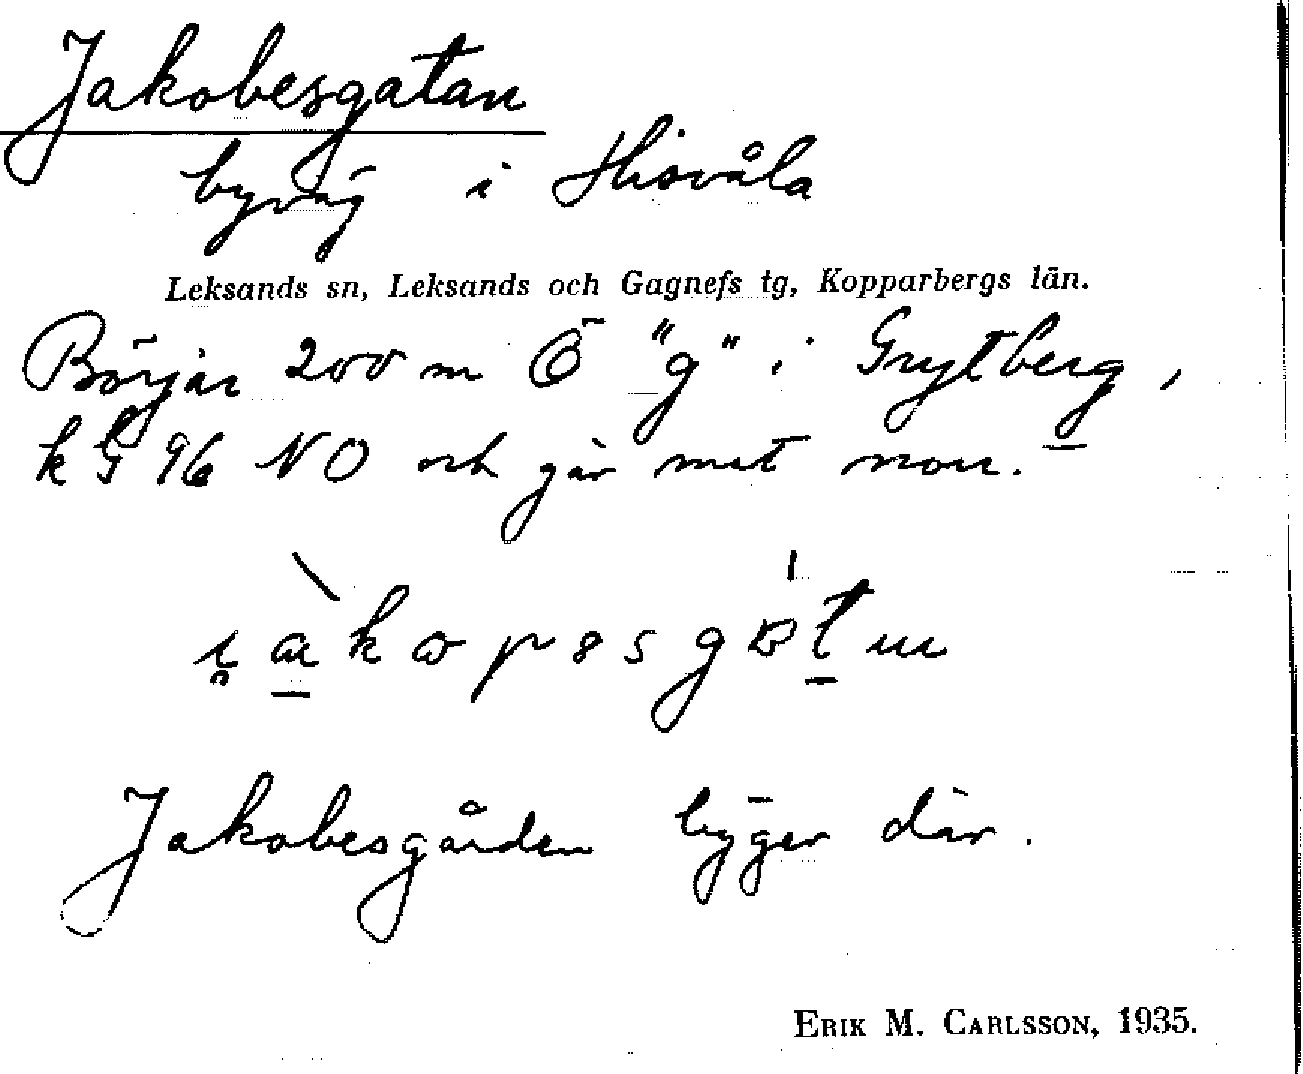 Jakobesgatan
byväg i Hisvåla
Leksands sn, Leksands och Gagnefs tg, Kopparbergs län.
Börjar 200 m Ö "g" i Grytberg,
k G 96 NO och går mot norr.
Jakobesgården ligger där.
ERIK M. CARLSSON, 1935.